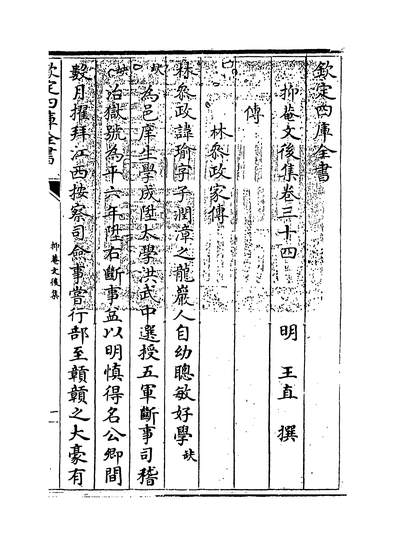 欽定四庫全書
抑菴文後集卷三十四
明 王直 撰
傳
林叅政家傳
林叅政諱瑜字子潤漳之龍巖人自幼聰敏好學缺
缺為邑庠生學成陞太學洪武中選授五軍斷事司稽
缺治獄號為平六年陞右斷事益以明慎得名公卿間
數月擢拜江西按察司僉事嘗行部至贛贛之大豪有
欽定四庫全書
抑菴文後集
一